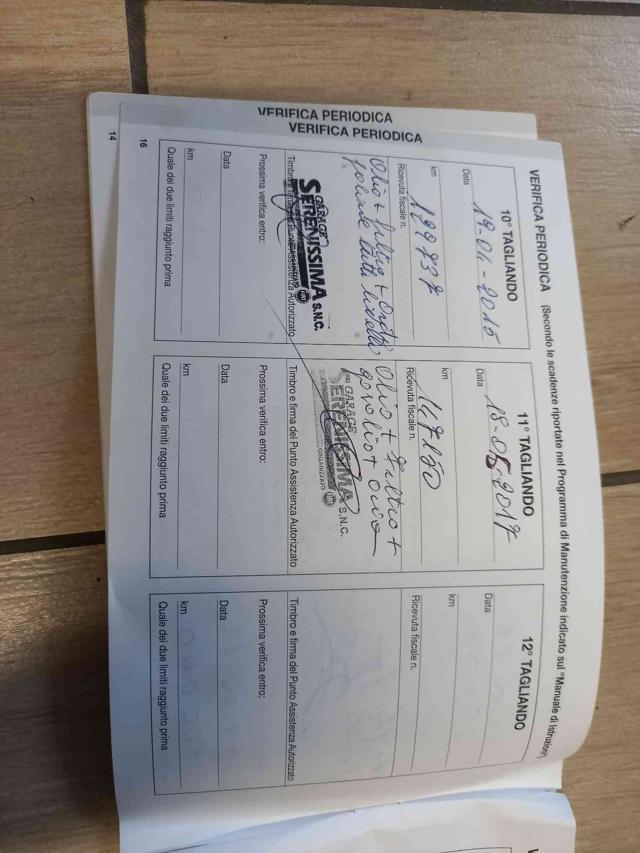 VERIFICA PERIODICA
VERIFICA PERIODICA
VERIFICA PERIODICA (Secondo le scadenze riportate nel Programma di Manutenzione indicato sul "Manuale di Istruzioni")
10° TAGLIANDO
Data 19-04-2015
km 129737
Ricevuta fiscale n.
Olio + Filtro +
tutti
GARAGE
SERENISSIMA S.N.C.
Timbro e firma del Punto Assistenza Autorizzato
Prossima verifica entro:
Data
km
Quale dei due limiti raggiunto prima
11° TAGLIANDO
Data 18-05-2017
km 147150
Ricevuta fiscale n.
Olio + Filtro +
gasolio +
GARAGE
SERENISSIMA S.N.C.
ORGANIZZATO
Timbro e firma del Punto Assistenza Autorizzato
Prossima verifica entro:
Data
km
Quale dei due limiti raggiunto prima
12° TAGLIANDO
Data
km
Ricevuta fiscale n.
Timbro e firma del Punto Assistenza Autorizzato
Prossima verifica entro:
Data
km
Quale dei due limiti raggiunto prima
16
14